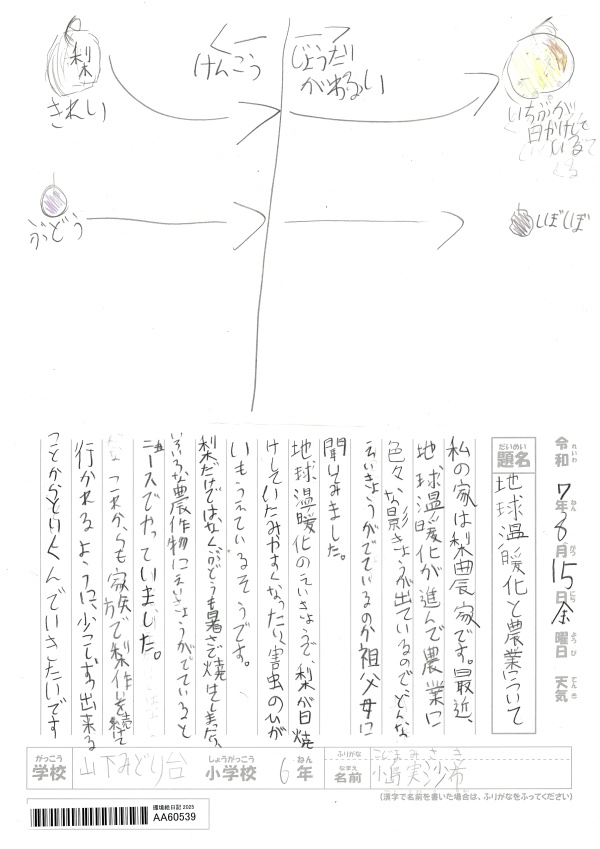 梨
きれい
けんこう
じょうたい
がわるい
いちぶが
日かけして
いるて
くる
ぶどう
しぼしぼ
令和 7年8月15日金曜日 天気
れいわ ねん がつ にち ようび てんき
だいめい
題名
地球温暖化と農業について
私の家は梨農家です。最近、
地球温暖化が進んで農業に
色々な影きょうが出ているのでどんな
えいきょうがでているのか祖父母に
聞いてみました。
地球温暖化のえいきょうで梨が日焼
けしていたみやすくなったり、害虫のひが
いもうえているそうです。
梨だけではなく、ぶどうも暑さで焼けてしまったり、
いろいろな農作物にえいきょうがでていると
ニュースでやっていました。
これからも家族で梨作りを続けて
行かれるように、少こしずつ出来る
ことからとりくんでいきたいです
がっこう
学校
山下みどり台
しょうがっこう
小学校
6年
ねん
ふりがな
こじま みさき
なまえ
名前
小島実沙希
(漢字で名前を書いた場合は、ふりがなをふってください)
環境絵日記 2025
AA60539